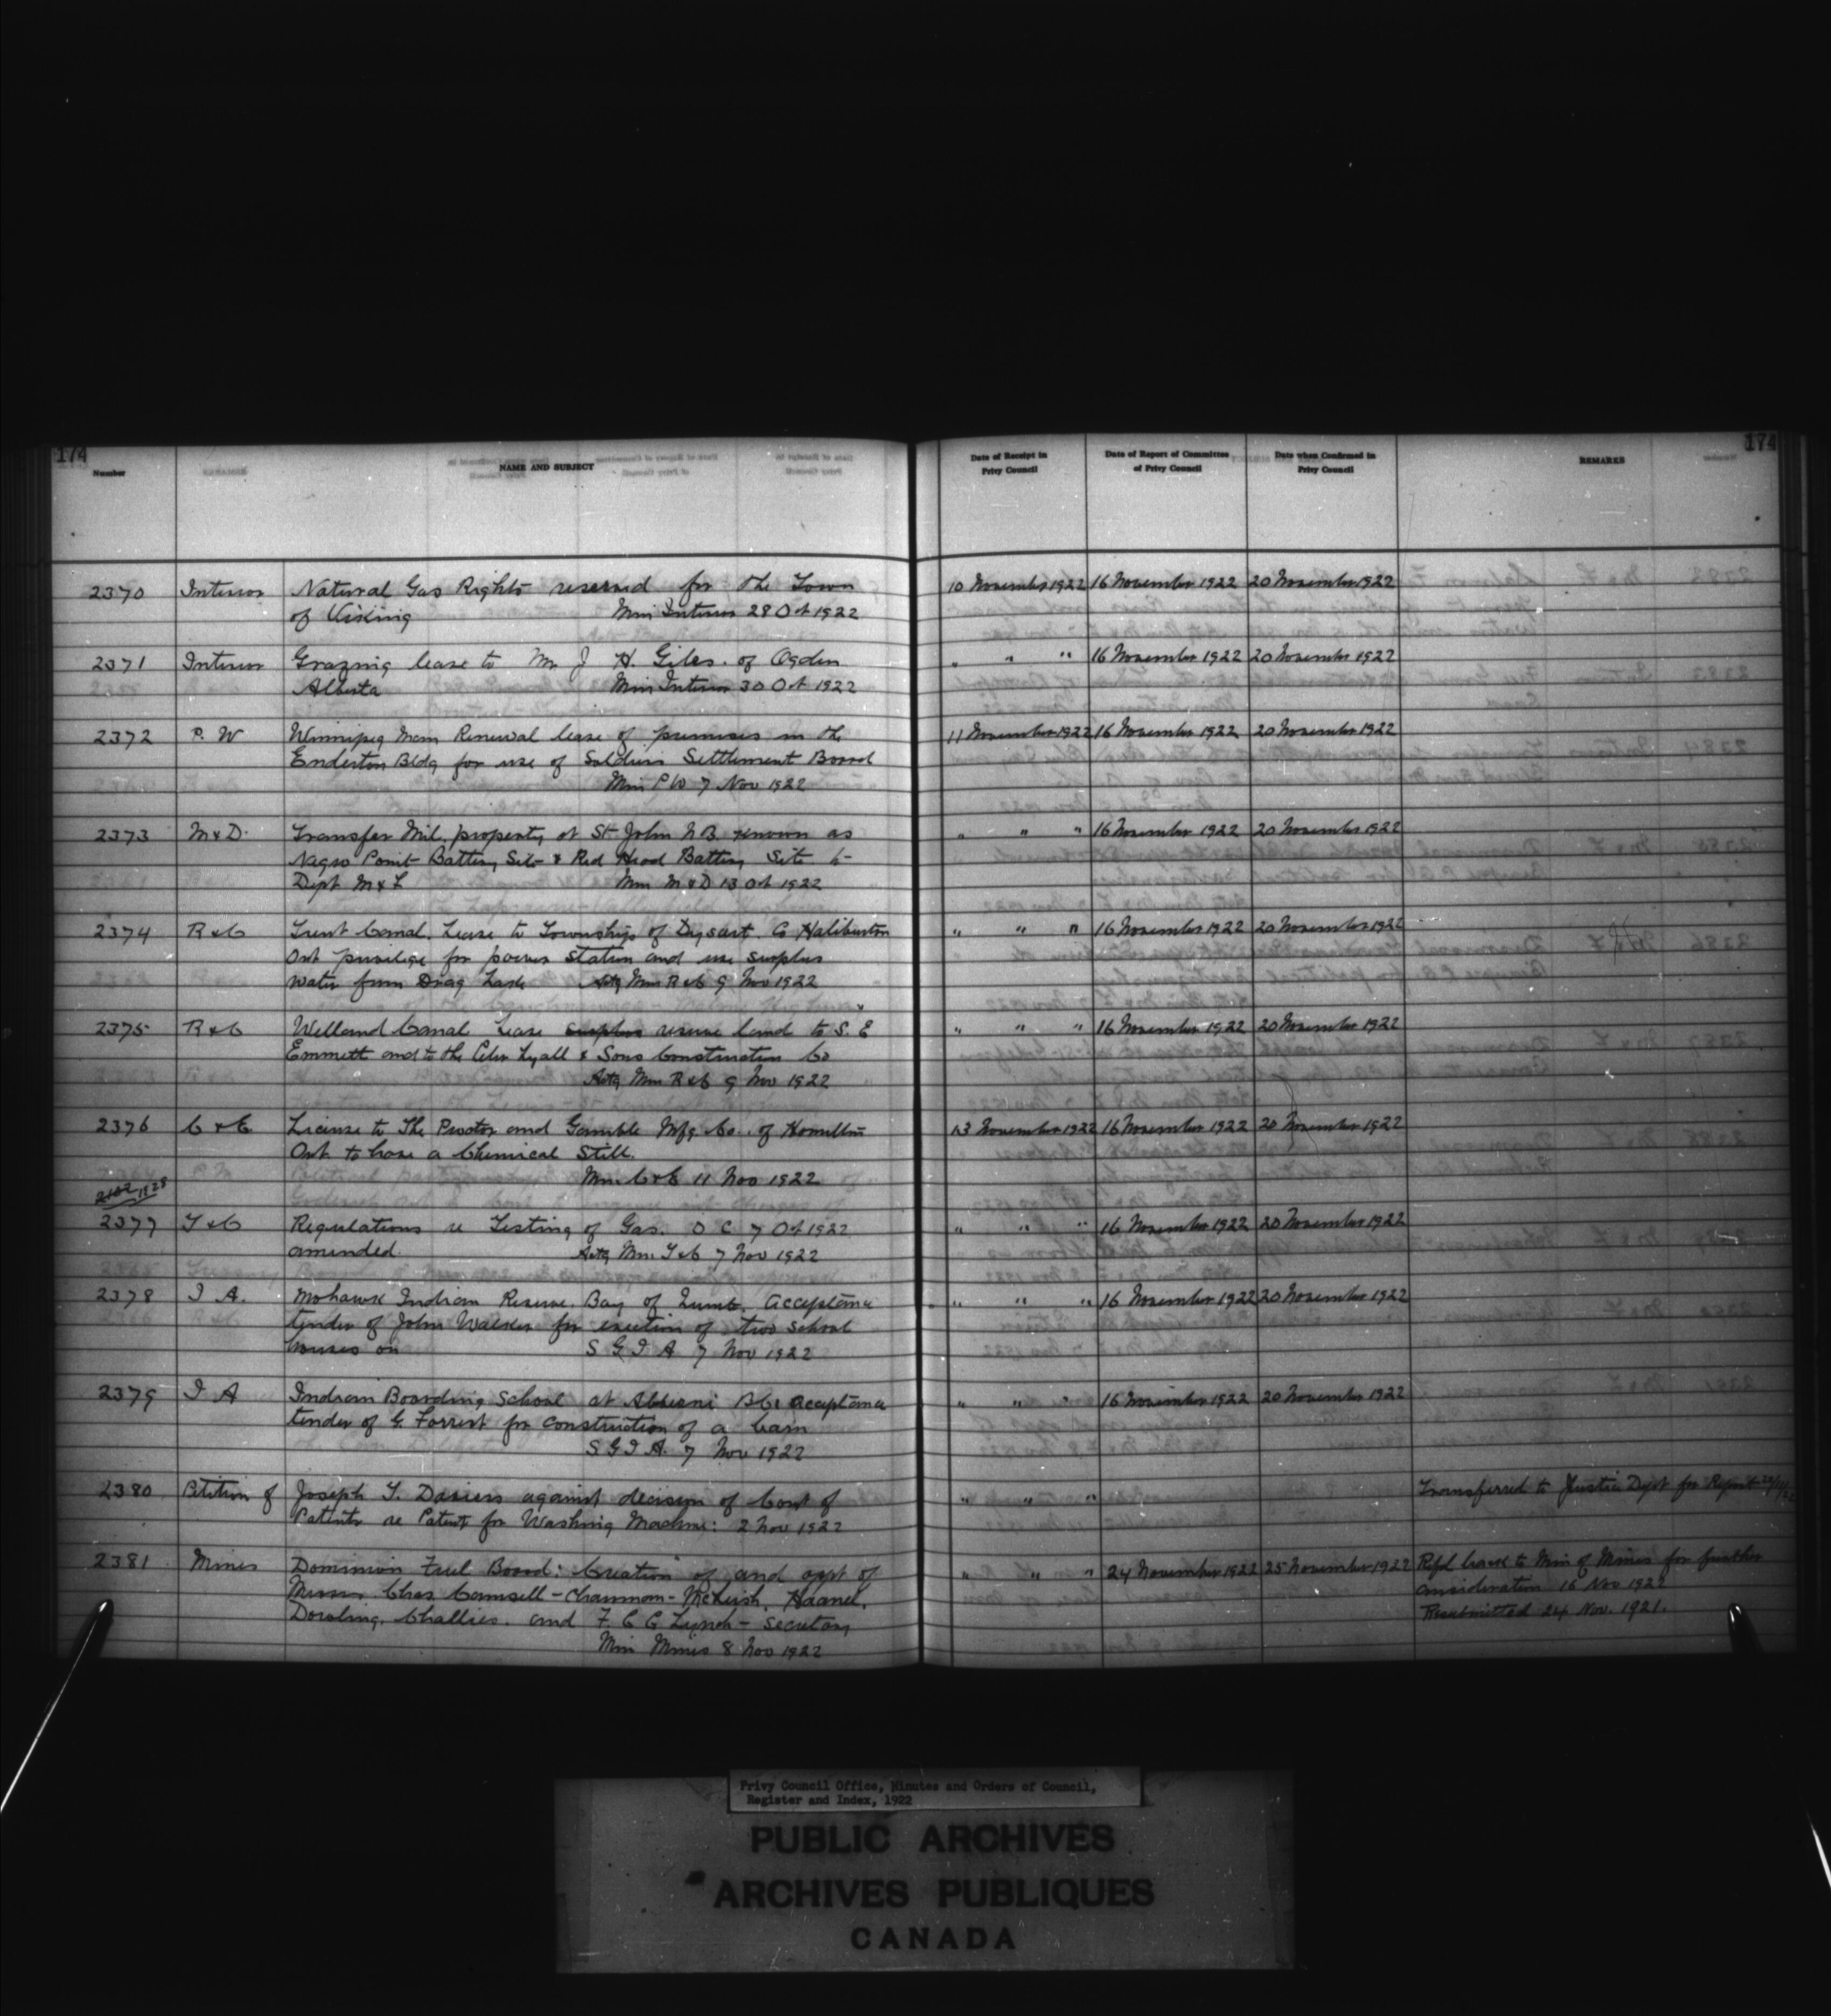 174
174
Number
NAME AND SUBJECT
Date of Receipt in
Privy Council
Date of Report of Committee
of Privy Council
Date when Confirmed in
Privy Council
REMARKS
2370 Interior Natural Gas Rights reserved for the Town 10 November 1922 16 November 1922 20 November 1922
of Viking Min Interior 28 Oct 1922
2371 Interior Grazing lease to Mr J H. Giles. of Ogden " " " 16 November 1922 20 November 1922
Alberta Min Interior 30 Oct 1922
2372 P. W Winnipeg Man Renewal lease of premises in the 11 November 1922 16 November 1922 20 November 1922
Enderton Bldg for use of Soldiers Settlement Board
Min P W 7 Nov 1922
2373 M & D. Transfer Mil. property at St John N.B. known as " " " 16 November 1922 20 November 1922
Negro Point Battery Site & Red Head Battery Site to
Dept M & F Min M & D 13 Oct 1922
2374 R & C Trent Canal. Lease to Township of Dysart. Co Haliburton " " " 16 November 1922 20 November 1922
Ont privilege for power station and use surplus
water from Drag Lake Actg Min R & C 9 Nov 1922
2375 R & C Welland Canal Lease surplus reserve land to S. E " " " 16 November 1922 20 November 1922
Emmett and to the Peter Lyall & Sons Construction Co
Actg Min R & C 9 Nov 1922
2376 C & E License to The Proctor and Gamble Mfg Co. of Hamilton 13 November 1922 16 November 1922 20 November 1922
Ont to have a Chemical Still.
Min C & E 11 Nov 1922
2377 T & C Regulations re Testing of Gas. O C 7 Oct 1922 " " " 16 November 1922 20 November 1922
amended. Actg Min T & C 7 Nov 1922
2378 I A. Mohawk Indian Reserve. Bay of Quinte. Acceptance " " " 16 November 1922 20 November 1922
tender of John Walker for erection of two school
houses on S G I A 7 Nov 1922
2379 I A Indian Boarding School at Alberni B C. acceptance " " " 16 November 1922 20 November 1922
tender of G. Forrest for construction of a barn
S G I A. 7 Nov 1922
2380 Petition of Joseph T. Davies against decision of Comr of " " " Transferred to Justice Dept for Report
Patents re Patent for Washing Machine: 2 Nov 1922
2381 Mines Dominion Fuel Board: Creation of and appt of " " " 24 November 1922 25 November 1922 Refd back to Min of Mines for further
Messrs Chas Camsell - Chairman - McLeish, Haanel, consideration 16 Nov 1922
Dowling, Challies. and F. C C Lynch - Secretary Resubmitted 24 Nov. 1921.
Min Mines 8 Nov 1922
Privy Council Office, Minutes and Orders of Council,
Register and Index, 1922
PUBLIC ARCHIVES
ARCHIVES PUBLIQUES
CANADA